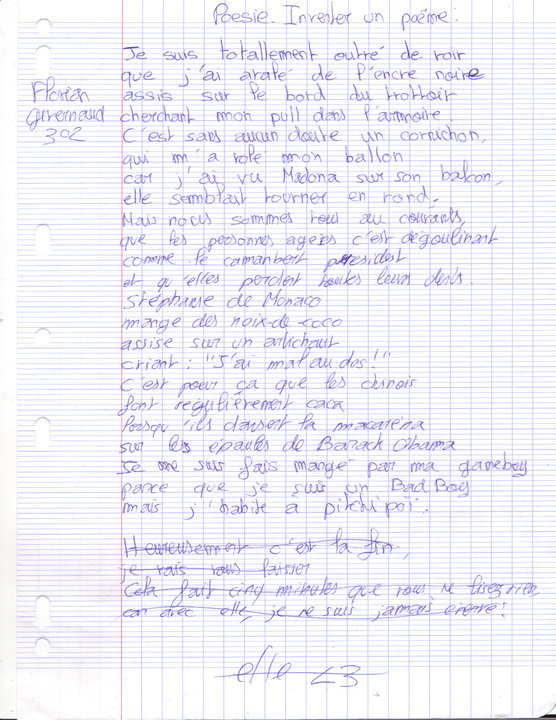 Poesie. Inventer un poème:
Florian
302
Je suis totallement outré de voir
que j'ai avalé de l'encre noire
assis sur le bord du trottoir
cherchant mon pull dans l'armoire.
C'est sans aucun doute un cornichon,
qui m'a volé mon ballon
car j'ai vu Madona sur son balcon,
elle semblait tourner en rond.
Mais nous sommes tous au courants,
que les personnes agées c'est dégoulinant
comme le camanbert président
et qu'elles perdent toutes leurs dents.
Stéphanie de Monaco
mange des noix de coco
assise sur un artichaut
criant : "J'ai mal au dos!"
C'est pour ça que les chinois
font regulièrement caca
lorsqu'ils dansent la macarena
sur les épaules de Barack Obama
Je me suis fais mangé par ma gameboy
parce que je suis un Bad Boy
mais j'habite a pitchipoï.
Heureusement c'est la fin,
je vais vous laisser
Cela fait cinq minutes que vous ne lisez rien,
car avec elle, je ne suis jamais
elle <3